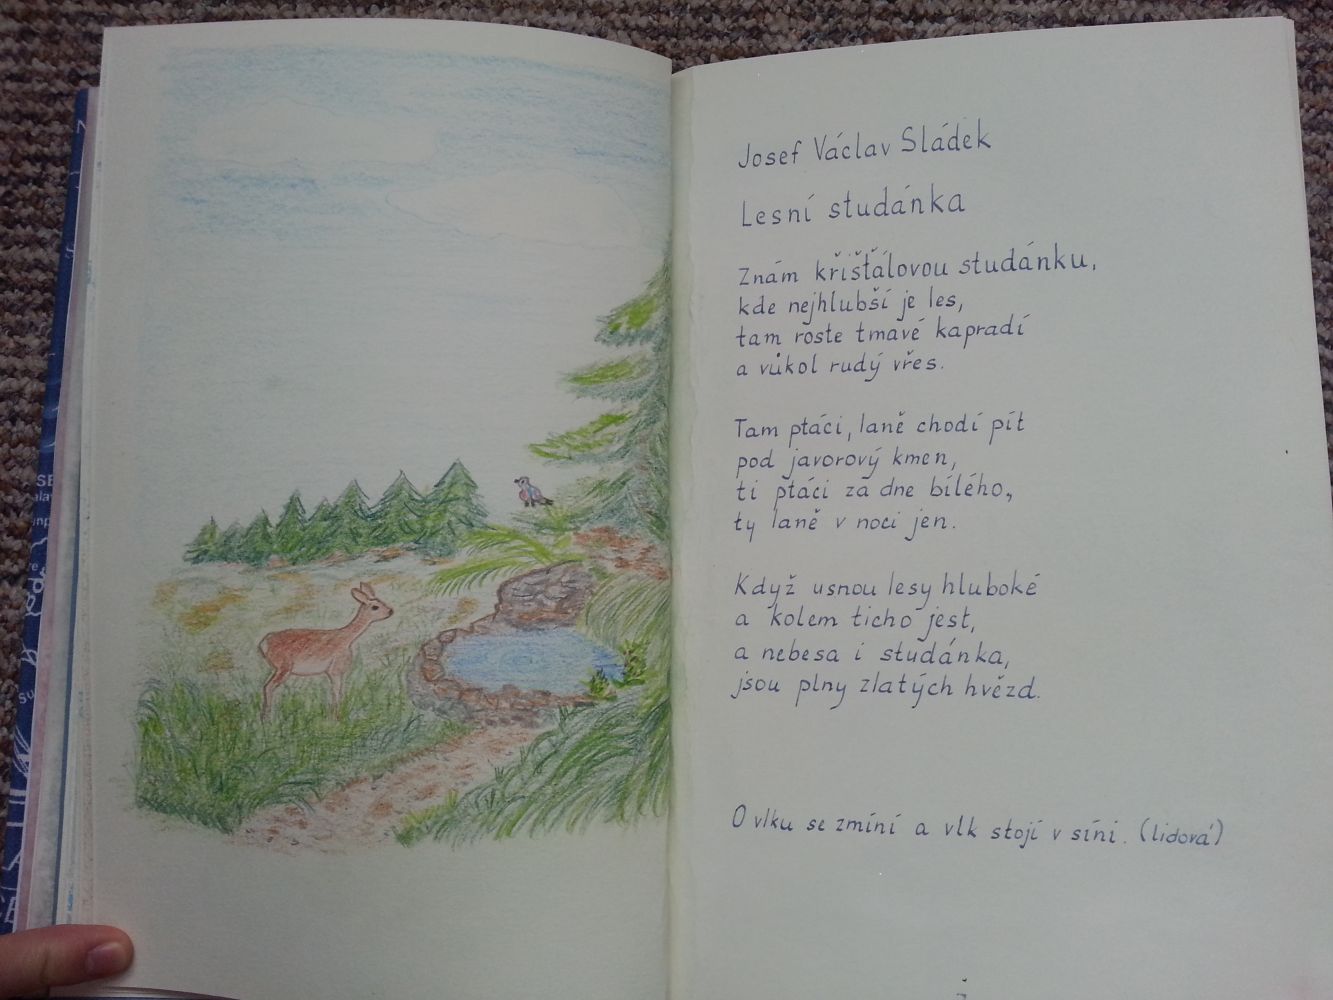 Josef Václav Sládek
Lesní studánka
Znám křišťálovou studánku,
kde nejhlubší je les,
tam roste tmavé kapradí
a vůkol rudý vřes.
Tam ptáci, laně chodí pít
pod javorový kmen,
ti ptáci za dne bílého,
ty laně v noci jen.
Když usnou lesy hluboké
a kolem ticho jest,
a nebesa i studánka,
jsou plny zlatých hvězd.
O vlku se zmíní a vlk stojí v síni. (lidová)